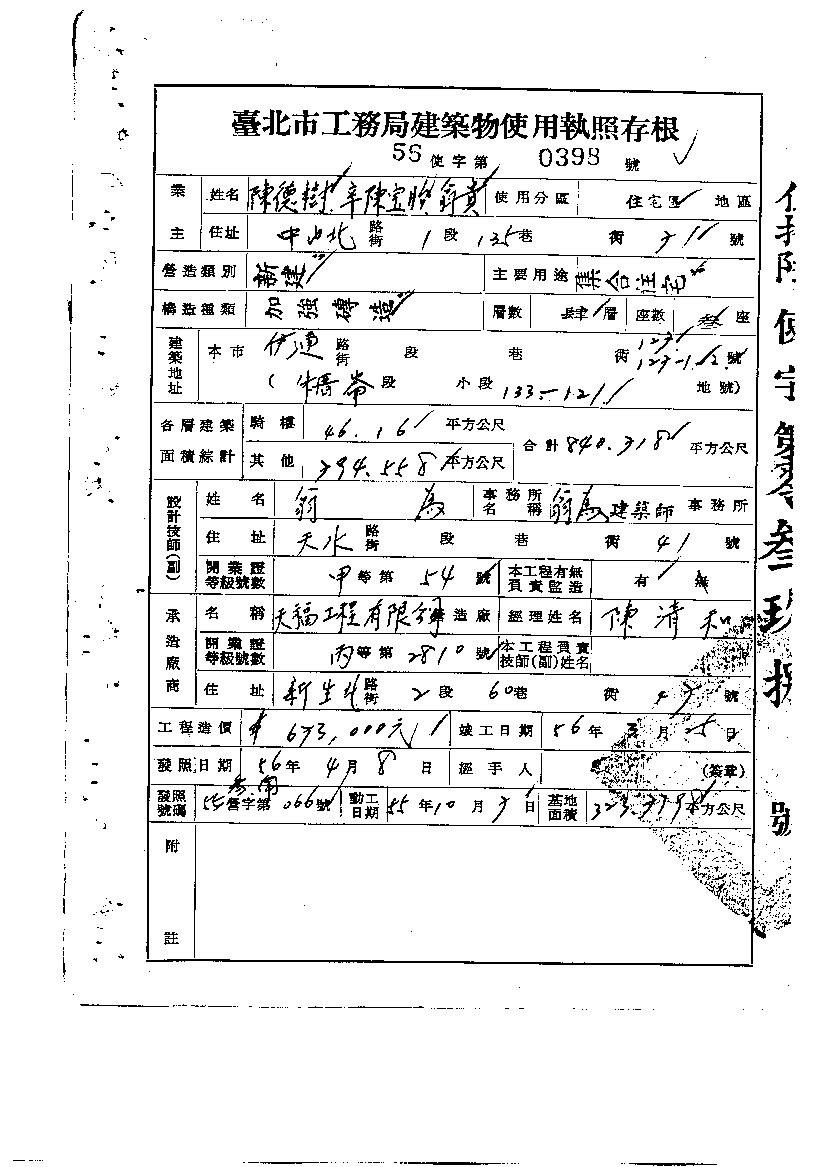 臺北市工務局建築物使用執照存根
56 使字第 0398 號
業主 姓名 陳德樹 辛陳宝 翁貴 使用分區 住宅區 地區
住址 中山北 路街 1 段 135 巷 街 號
營造類別 新建 主要用途 集合住宅
構造種類 加強磚造 層數 肆 層 座數 叁 座
建築地址 本市 伊通 路街 段 巷 街 號
( 段 小段 133-121 地號)
各層建築面積綜計 騎樓 46.16 平方公尺 合計 840.718 平方公尺
其他 794.558 平方公尺
設計技師(副) 姓名 翁 為 事務所名稱 翁為建築師 事務所
住址 天水 路街 段 巷 街 41 號
開業證等級號數 甲 等第 54 號 本工程有無負責監造 有 無
承造廠商 名稱 天福工程有限 營造廠 經理姓名 陳清和
開業證等級號數 丙 等第 2810 號 本工程負責技師(副)姓名
住址 新生北 路街 2 段 60 巷 街 號
工程造價 673,000元 竣工日期 56 年 3 月 日
發照日期 56 年 4 月 8 日 經手人 (簽章)
發照號碼 55 營字第 066 號 動工日期 55 年 10 月 日 基地面積 平方公尺
附註
使字第零叁玖捌號